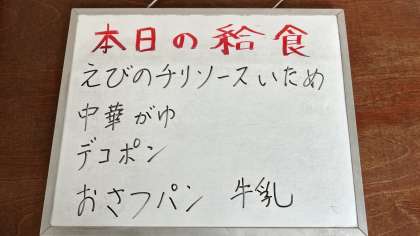 本日の給食
えびのチリソースいため
中華がゆ
デコポン
おさつパン 牛乳